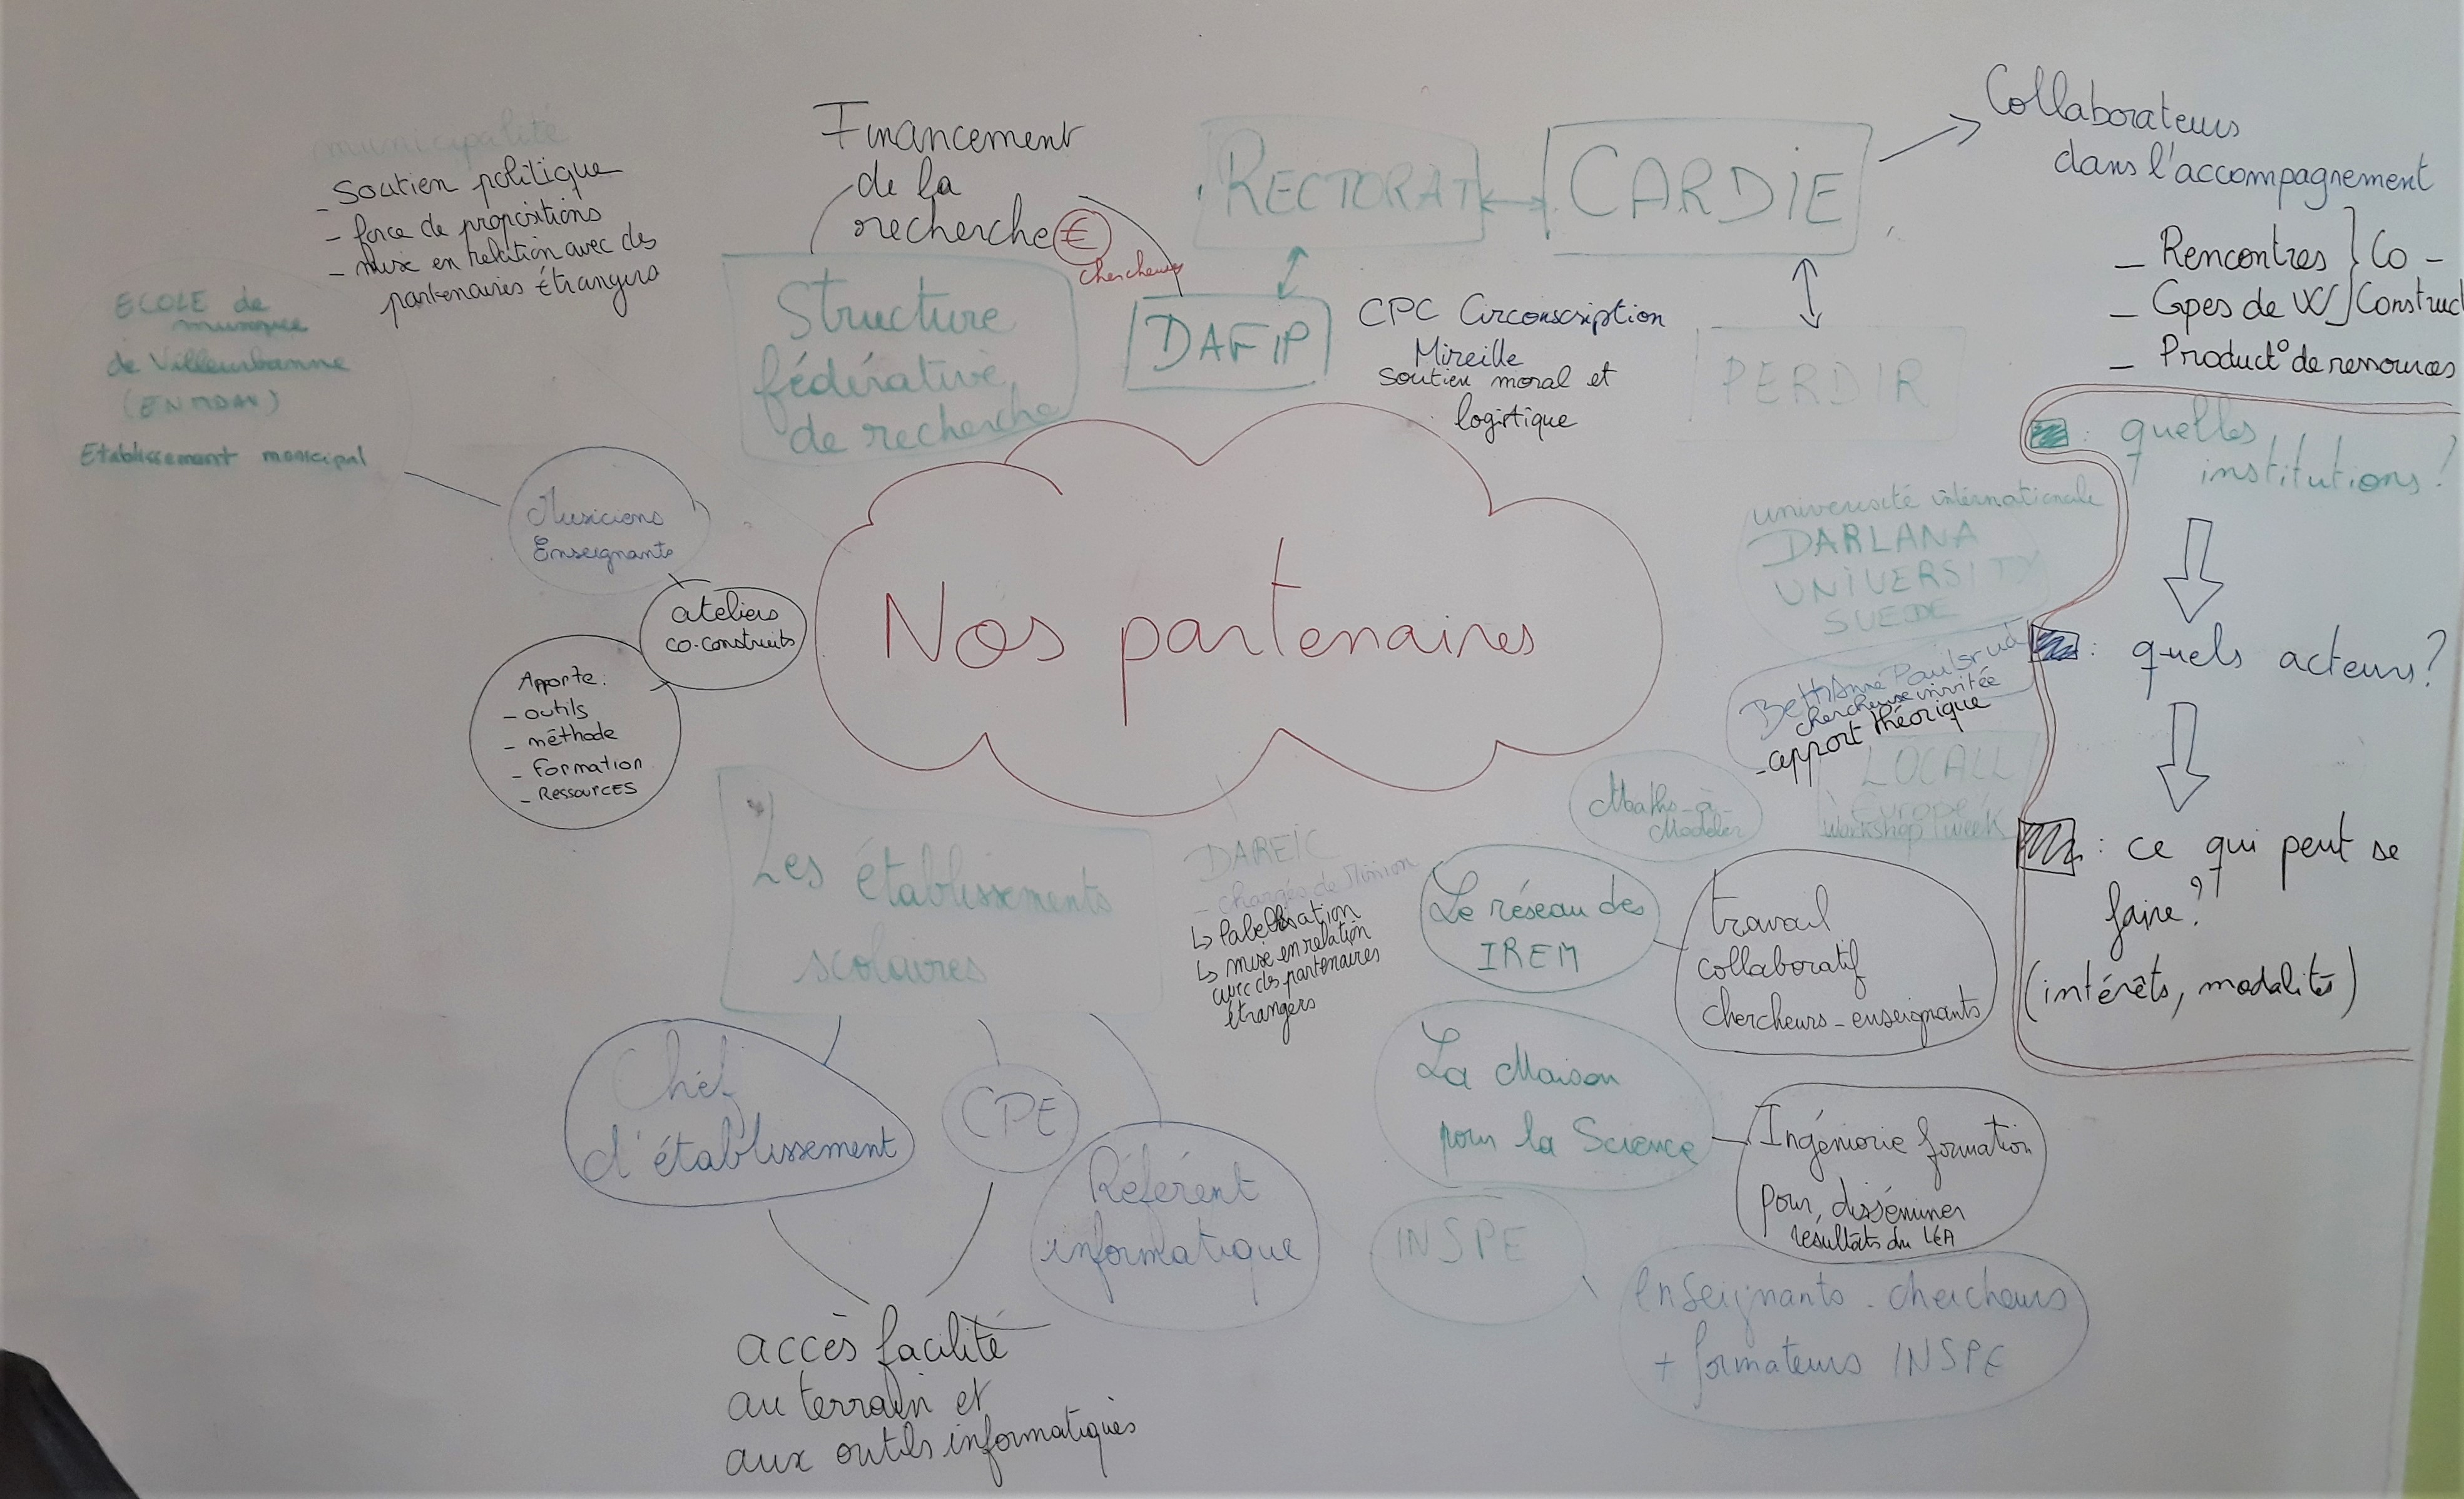 municipalité
- Soutien politique
- force de propositions
- mise en relation avec des
partenaires étrangers
ECOLE de
musique
de Villeurbanne
Etablissement municipal
Musiciens
Enseignants
ateliers
co-construits
Apporte :
- outils
- méthode
- Formation
- RessourcES
Financement
de la
recherche €
chercheurs
Structure
fédérative
de recherche
RECTORAT
CARDIE
DAFIP
CPC Circonscription
Mireille
Soutien moral et
logistique
PERDIR
Collaborateurs
dans l'accompagnement
- Rencontres } Co-
- Gpes de W } Construct
- Product° de ressources
Nos partenaires
: quelles
institutions ?
: quels acteurs ?
: ce qui peut se
faire ?
(intérêts, modalités)
université internationale
DARLANA
UNIVERSITY
SUEDE
BethAnne Paulsrud
chercheuse invitée
- apport théorique
LOCALL
Europe
Workshop week
Maths-à-
Modeler
Le réseau des
IREM
travail
collaboratif
chercheurs - enseignants
La Maison
pour la Science
Ingénierie formation
pour disséminer
résultats du LéA
INSPE
enseignants - chercheurs
+ formateurs INSPE
DAREIC
- chargés de Mission
↳ labellisation
↳ mise en relation
avec des partenaires
étrangers
Les établissements
scolaires
Chef
d'établissement
CPE
Référent
informatique
accès facilité
au terrain et
aux outils informatiques